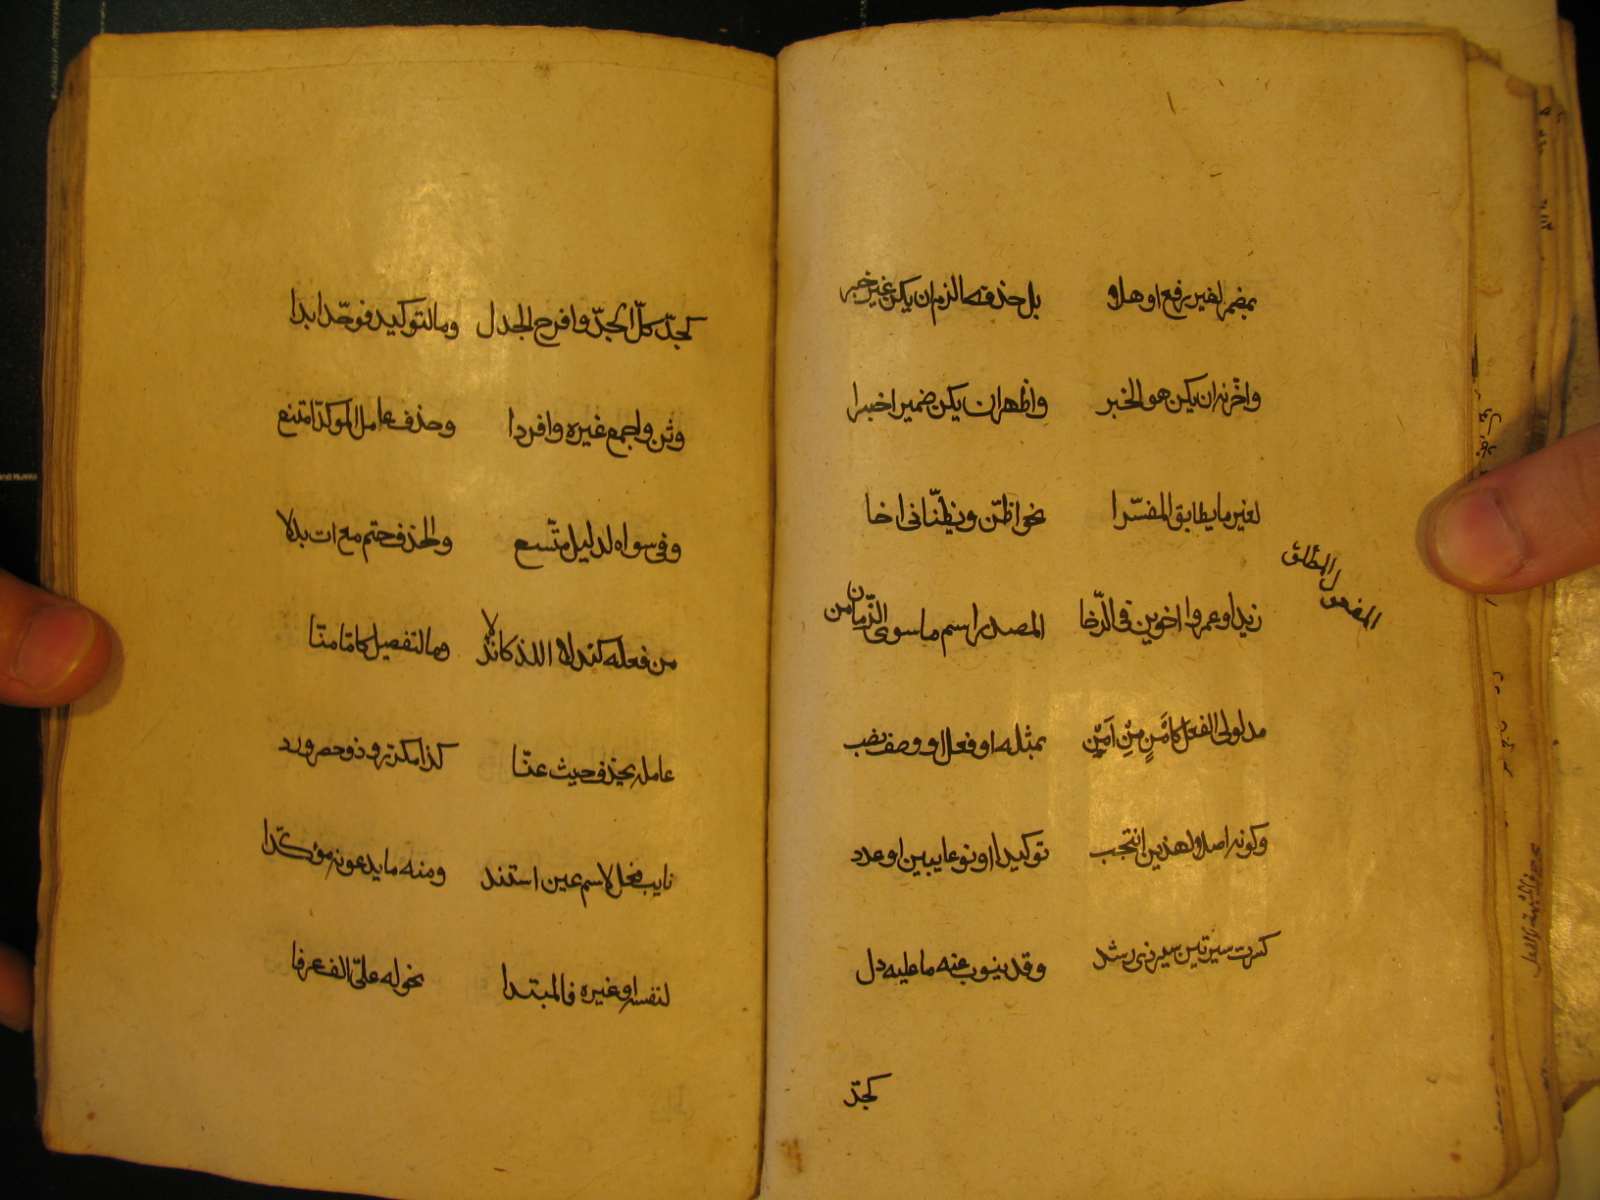 بمضمر لغير رفع اوهلا و بل حذفه الزم ان يكن غير خبر
واخرنه ان يكن هو الخبر واظهر ان يكن ضمير اخبرا
لغير ما يطابق المفسّرا نحو اظنّ ويظنّانى اخا
زيدا وعمروا اخوين فى الرّخا المصدر اسم ما سوى الزّمان من
المفعول المطلق
مدلولى الفعل كأمْنٍ مِنْ اَمِنْ بمثله او فعل او وصف نصب
وكونه اصلا لهذين انتخب توكيدا او نوعا يبين او عدد
كسرت سيرتين سير ذى رشد وقد ينوب عنه ما عليه دل
كجدّ
كجدّ كلّ الجدّ وافرح الجدل وما لتوكيد فوحّد ابدا
وثن واجمع غيره وافردا وحذف عامل الموكد امتنع
وفى سواه لدليل متّسع والحذف حتم مع ات بدلا
من فعله كندلا اللذ كاندلا وما لتفصيل كاما منّا
عامله يحذف حيث عنّا كذا مكرّر وذو حصر ورد
نايب فعل لاسم عين استند ومنه ما يدعونه مؤكّدا
لنفسه او غيره فالمبتدا نحو له علىّ الف عرفا